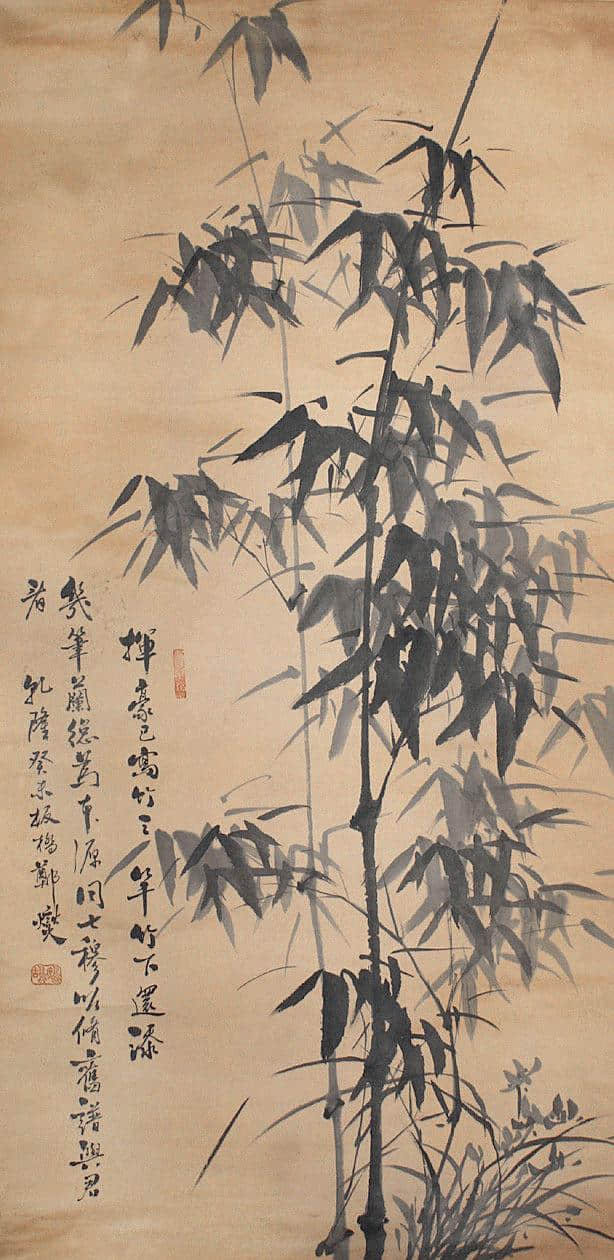 揮豪已寫竹三竿竹下還添
幾筆蘭總為本源同七穆以脩舊譜與君
看 乾隆癸未板橋鄭燮